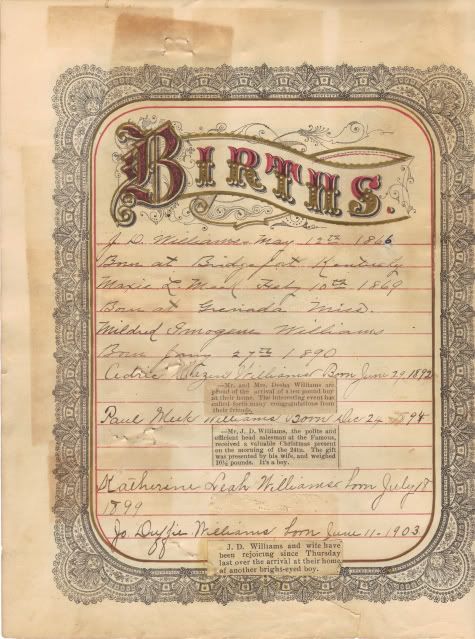 BIRTHS.
J. D. Williams May 12th 1866
Born at Bridgeport Kentucky
Maxie L. Meek Feb 10th 1869
Born at Grenada Miss.
Mildred Imogene Williams
Born Jany 27th 1890
Cedric Hazen Williams Born June 29, 1892
—Mr. and Mrs. Desha Williams are
proud of the arrival of a ten pound boy
at their home. The interesting event has
called forth many congratulations from
their friends.
Paul Meek Williams Born Dec 24 94
—Mr. J. D. Williams, the polite and
efficient head salesman at the Famous,
received a valuable Christmas present
on the morning of the 24th. The gift
was presented by his wife, and weighed
10½ pounds. It's a boy.
Katherine Leah Williams born July 18
1899
Jo Duffie Williams born June 11-1903
J. D. Williams and wife have
been rejoicing since Thursday
last over the arrival at their home
of another bright-eyed boy.